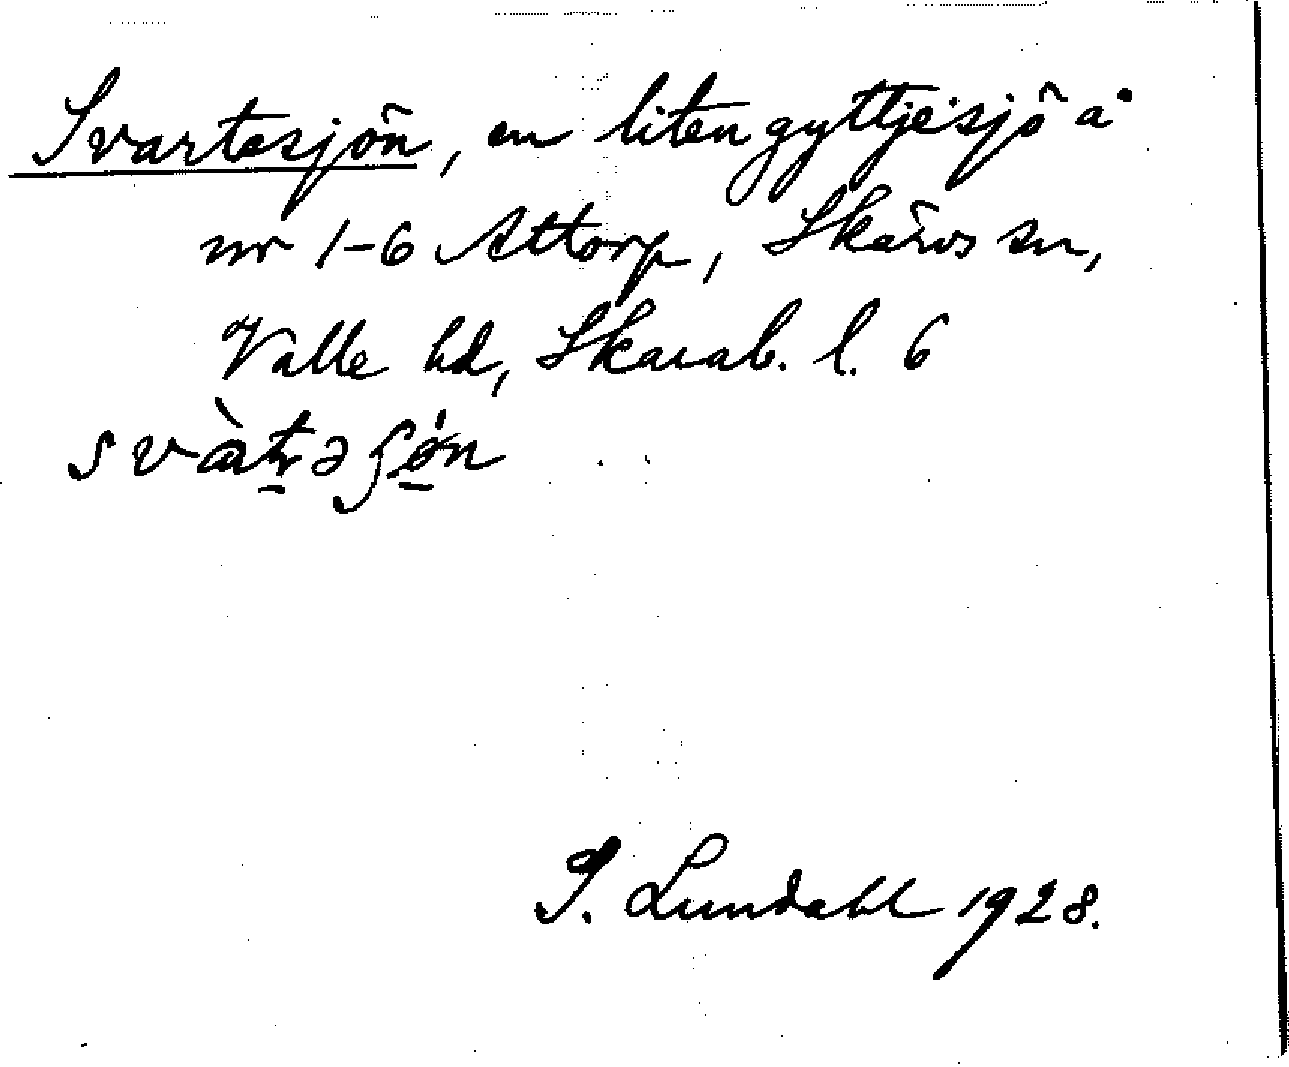 Svartesjön, en liten gyttjesjö å
nr 1-6 Attorp, Skärvs sn,
Valle hd, Skarab. l. 6
I. Lundahl 1928.